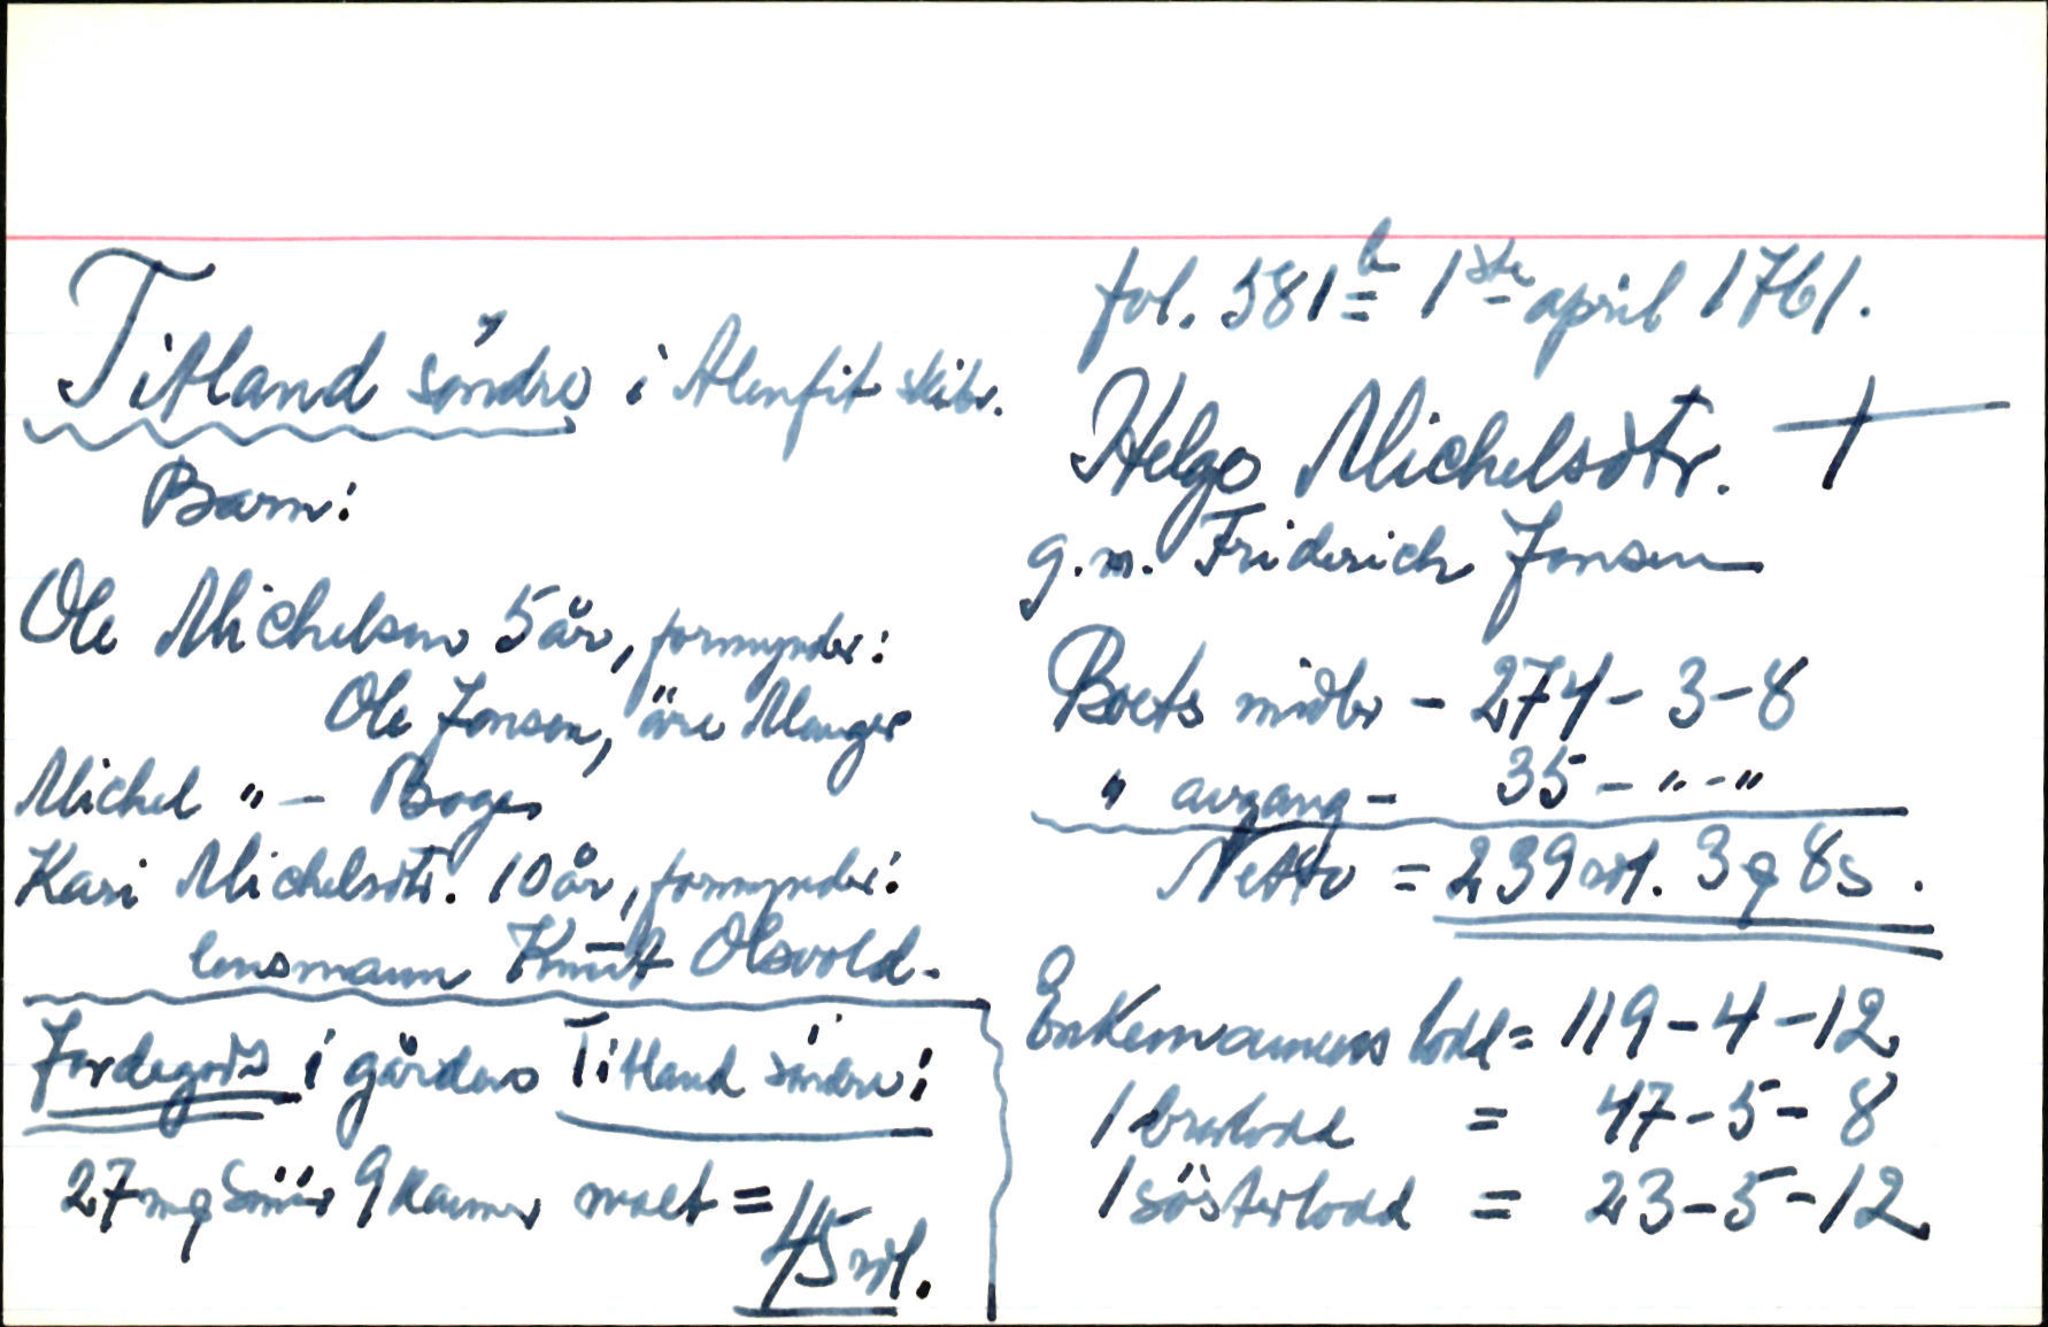 Titland söndre i Alenfit skibr.
Barn:
Ole Michelsen 5 år, formynder:
Ole Jonsen, öre Manger
Michel " - Boge
Kari Michelsdtr. 10 år, formynder:
lensmann Knut Olsvold.
Jordegods i gården Titland söndre:
27 mq Smör 9 kanner malt =
45 rdl.
fol. 581b 1ste april 1761.
Helge Michelsdtr. †
g.m. Friderich Jonsen
Boets midler - 274 - 3 - 8
" avgang - 35 - " - "
Netto = 239 rdl. 3 q 8 s.
Enkemannens lodd = 119 - 4 - 12
1 brorlodd = 47 - 5 - 8
1 sösterlodd = 23 - 5 - 12